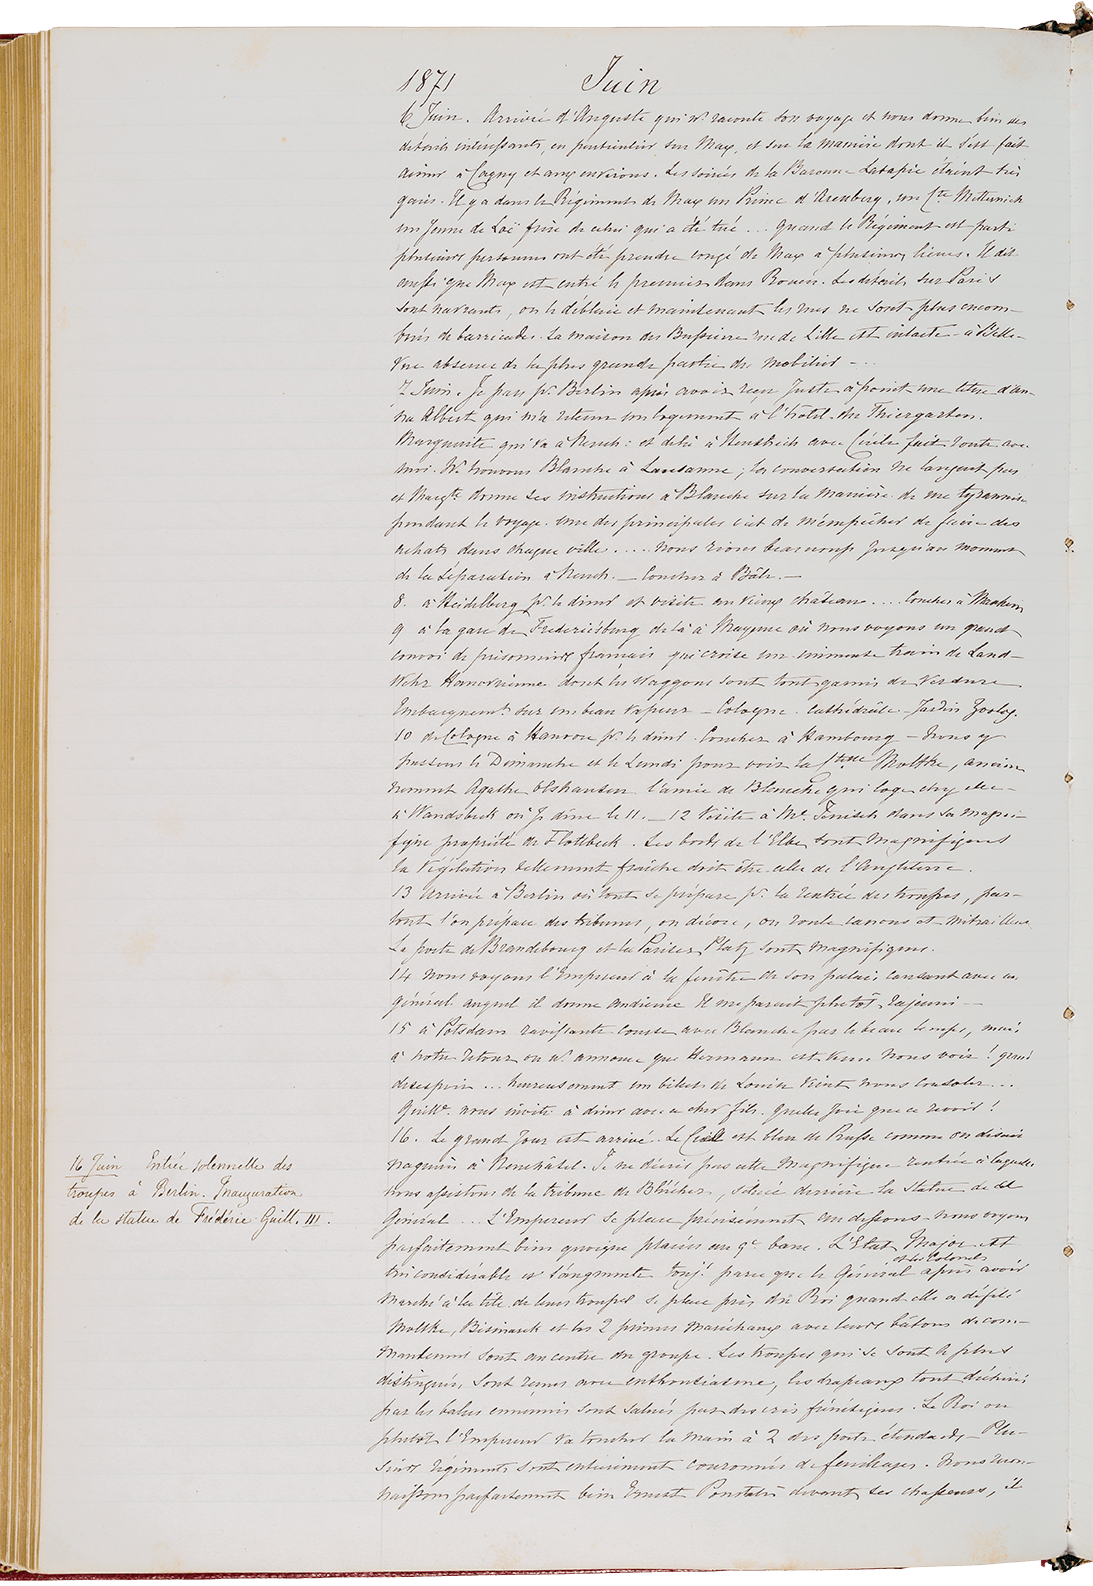 1871 Juin
6 Juin. Arrivée d'Auguste qui ns. raconte son voyage et nous donne bien des
détails intéressants, en particulier sur Max, et sur la manière dont il s'est fait
aimer à Cagny et aux environs. Les soirées de la Baronne Latapie étaient très
gaies. Il y a dans le Régiment de Max un Prince d'Arenberg, un Cte Metternich
un jeune de Loë frère de celui qui a été tué ... quand le Régiment est parti
plusieurs personnes ont été prendre congé de Max à plusieurs lieues. Il dit
aussi que Max est entré le premier dans Rouen. Les détails sur Paris
sont navrants, on le déblaie et maintenant les rues ne sont plus encom-
brées de barricades. La maison des Bussiere rue de Lille est intacte - à Belle-
Vue absence de la plus grande partie du mobilier - ...
7 Juin. Je pars pr. Berlin après avoir reçu juste à point une lettre d'
Albert qui m'a retenu un logement à l'hotel du Thiergarten.
Marguerite qui va à Neuch: et delà à Hendrich avec Cécile fait route avec
moi. Ns. trouvons Blanche à Lausanne; la conversation ne languit pas
et Margte. donne ses instructions à Blanche sur la manière de me tyranniser
pendant le voyage. une des principales c'est de m'empêcher de faire des
achats dans chaque ville .... nous rions beaucoup jusqu'au moment
de la séparation à Neuch. — Coucher à Bâle. —
8. à Heidelberg pr. le diner et visite au vieux château .... Coucher à Manheim
9 à la gare de Fredericsburg delà à Mayence où nous voyons un grand
convoi de prisonniers français qui croise un immense train de Land-
wehr Hanovrienne dont les waggons sont tout garnis de verdure
Embarquemt. sur un beau vapeur - Cologne. Cathédrale - Jardin Zoolog.
10 de Cologne à Hanovre pr. le diner. Coucher à Hambourg - nous y
passons le Dimanche et le Lundi pour voir la Ctesse Moltke, ancien-
nement Agathe Olshausen l'amie de Blanche qui loge chez elle
à Wandsbeck où je dîne le 11. — 12 Visite à Me. Jenisch dans sa magni-
fique propriété de Flottbeck. Les bords de l'Elbe sont magnifiques
la végétation tellement fraîche doit être celle de l'Angleterre.
13 Arrivée à Berlin où tout se prépare pr. la rentrée des troupes, par-
tout l'on prépare des tribunes, on décore, on roule canons et mitrailleuses
La porte de Brandebourg et la Pariser Platz sont magnifiques.
14 Nous voyons l'Empereur à la fenêtre de son palais causant avec un
général auquel il donne audience Il me parait plutôt rajeuni —
15 à Potsdam ravissante course avec Blanche par le beau temps, mais
à notre retour on ns. annonce que Hermann est venu nous voir! grand
désespoir ... heureusement un billet de Louise vient nous consoler ...
Guille. nous invite à diner avec ce cher fils. Quelle joie que ce revoir!
16. Le grand jour est arrivé. Le Ciel est bleu de Prusse comme on disait
naguères à Neuchâtel. Je ne décris pas cette magnifique rentrée à laquelle
nous assistons de la tribune de Blücher, située derrière la statue de ce
Général ... L'Empereur se place précisement au dessous - nous voyons
parfaitement bien quoique placées au 9e banc. L'Etat Major est
très considérable et s'augmente touj: parce que le Général et les Colonels après avoir
marché à la tête de leurs troupes se place près du Roi quand elle a défilé
Moltke, Bismarck et les 2 princes Maréchaux avec leurs bâtons de com-
mandement sont au centre du groupe. Les troupes qui se sont le plus
distinguées, sont reçues avec enthousiasme, les drapeaux tout déchirés
par les balles ennemies sont salués par des cris frénétiques. Le Roi ou
plutôt l'Empereur va toucher la main à 2 des porte étendards - Plu-
sieurs régiments sont entierement couronnés de feuillages. Nous recon-
naissons parfaitement bien Ernest Pourtalès devant ses chasseurs, il
16 Juin Entrée solennelle des
troupes à Berlin. Inauguration
de la statue de Frédéric Guill. III.